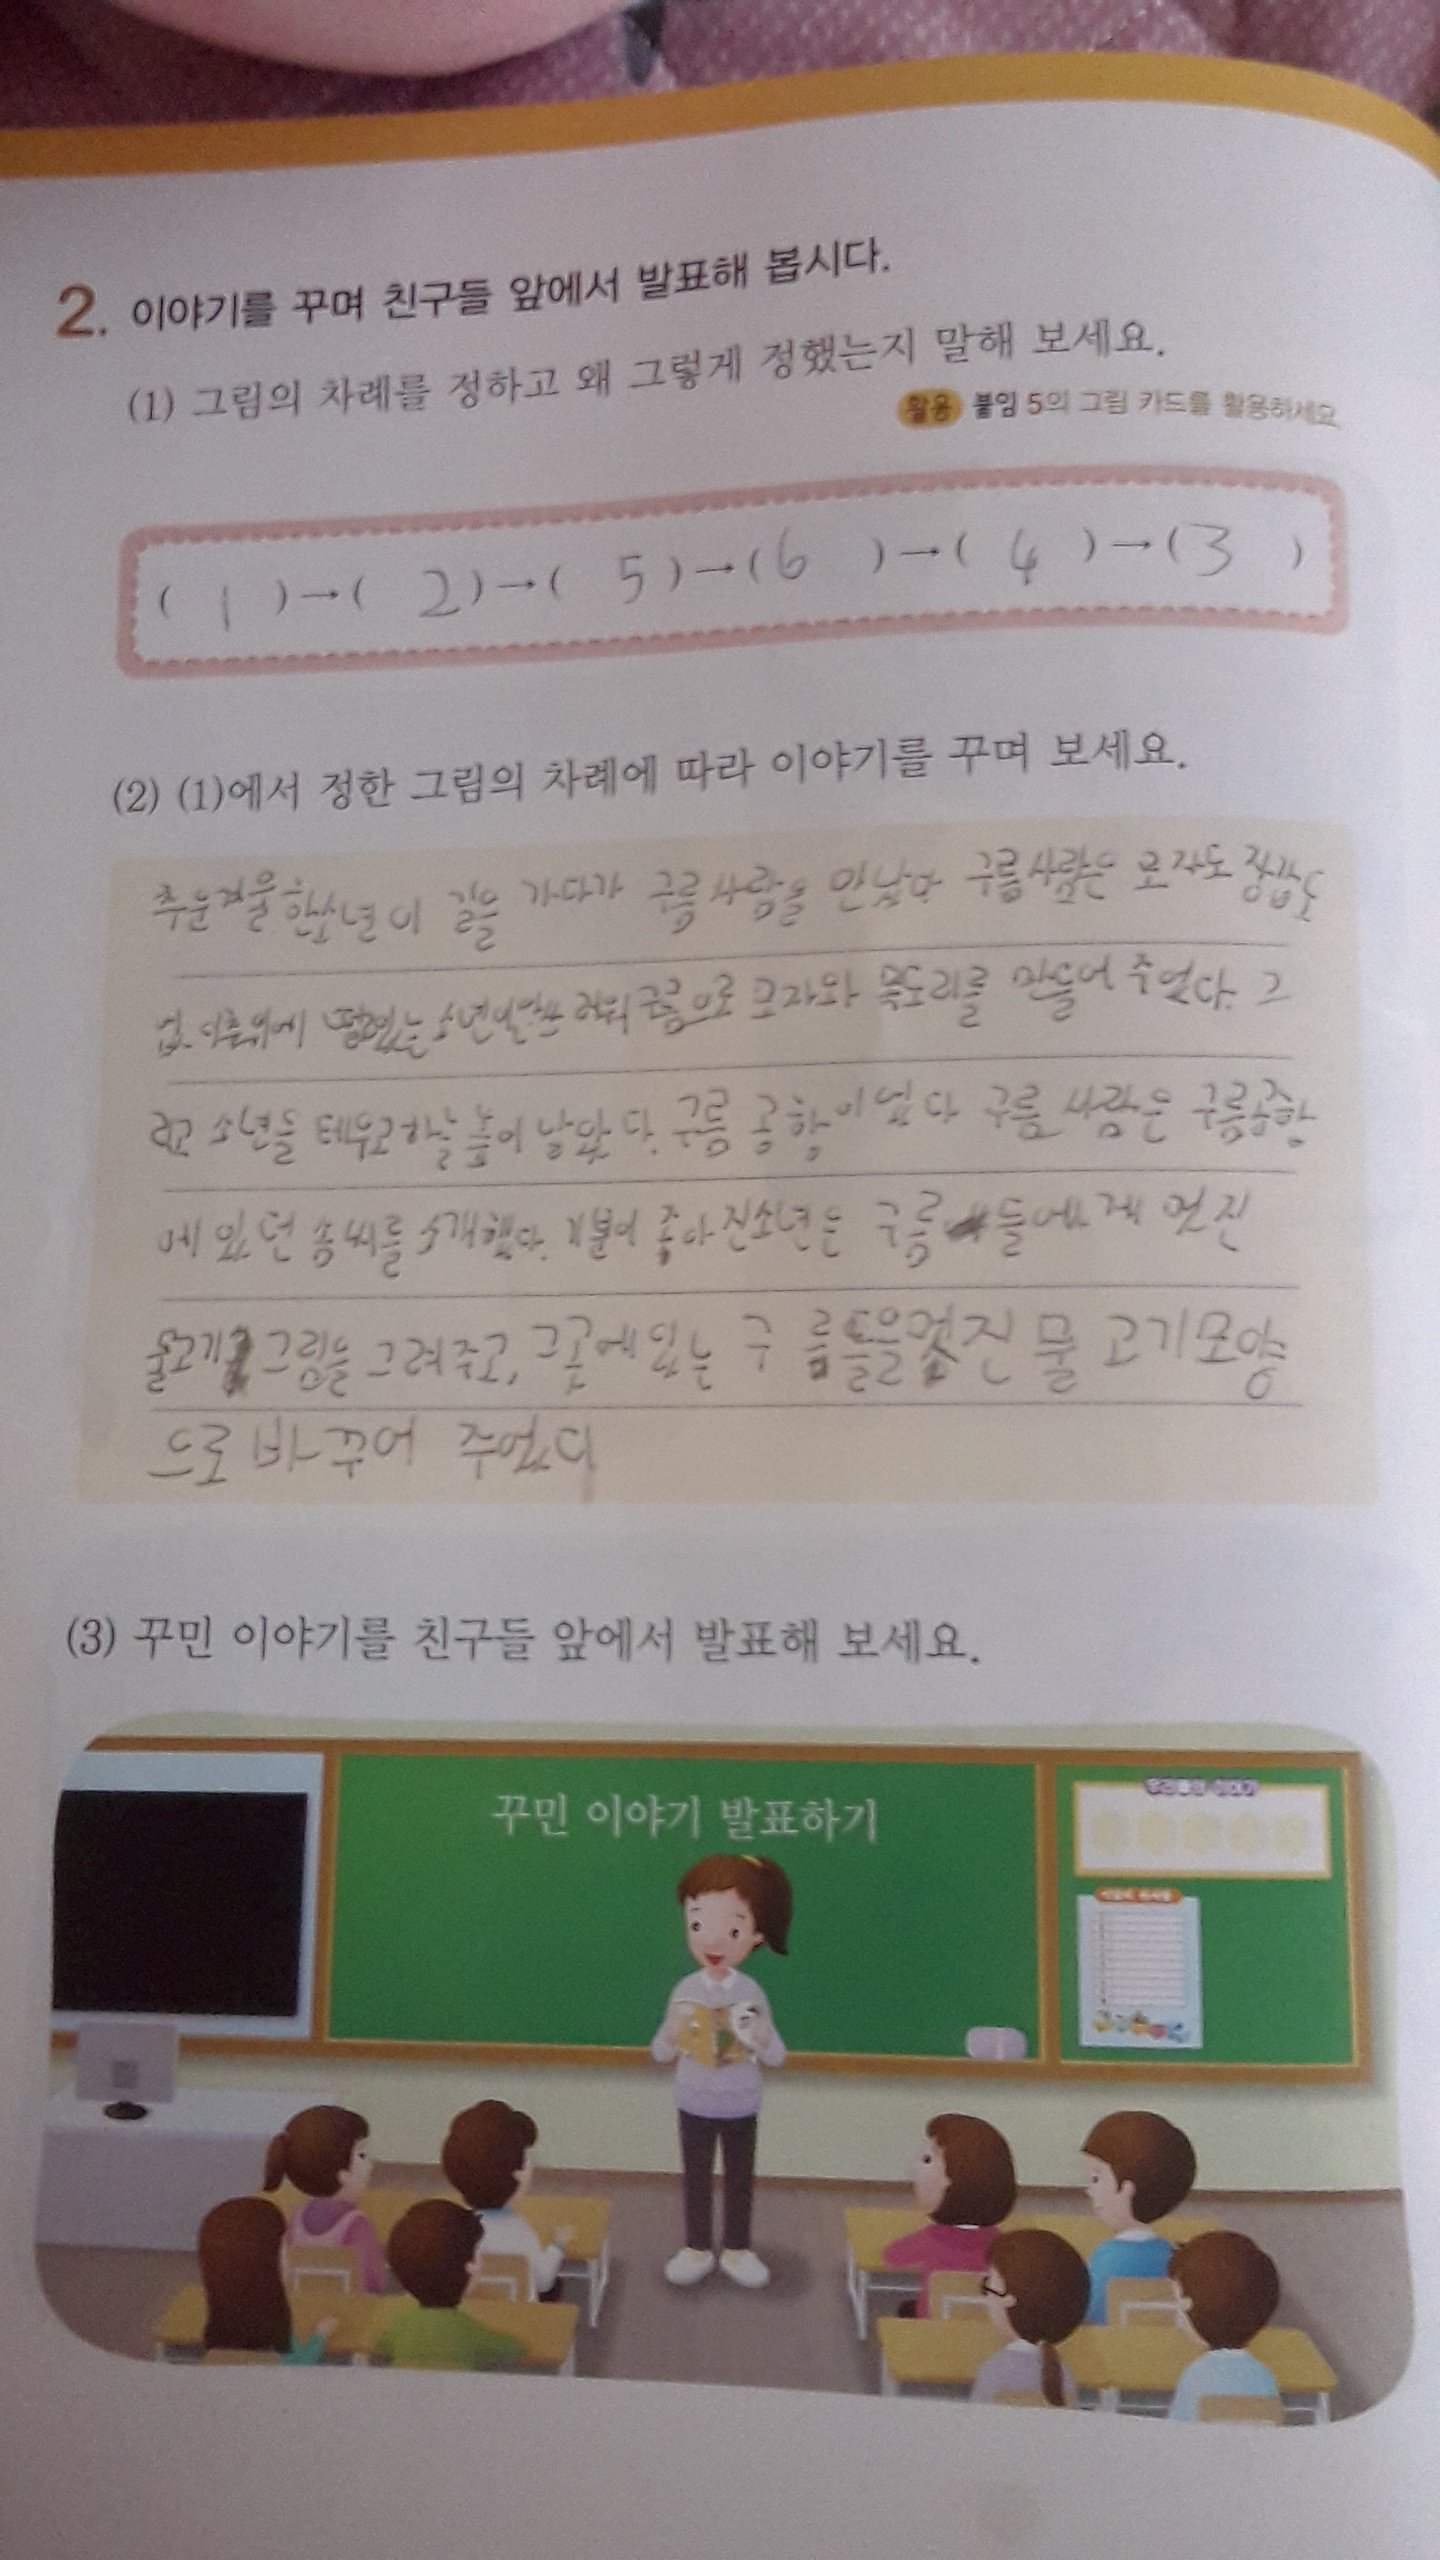 2. 이야기를 꾸며 친구들 앞에서 발표해 봅시다.
(1) 그림의 차례를 정하고 왜 그렇게 정했는지 말해 보세요.
활용 붙임 5의 그림 카드를 활용하세요.
( 1 )→( 2 )→( 5 )→( 6 )→( 4 )→( 3 )
(2) (1)에서 정한 그림의 차례에 따라 이야기를 꾸며 보세요.
추운겨울 한소년이 길을 가다가 구름사람을 만났다 구름사람은 모자도 장갑도
없이 추위에 떨고있는 소년이 구름으로 모자와 목도리를 만들어 주었다. 그
리고 소년을 태우고 하늘 높이 날았다. 구름 공항이었다 구름 사람은 구름공항
에 있던 솜씨를 소개했다. 기분이 좋아진소년은 구름들에게 멋진
물고기 그림을 그려주고, 그곳에있는 구름들을 멋진 물고기모양
으로 바꾸어 주었다
(3) 꾸민 이야기를 친구들 앞에서 발표해 보세요.
꾸민 이야기 발표하기